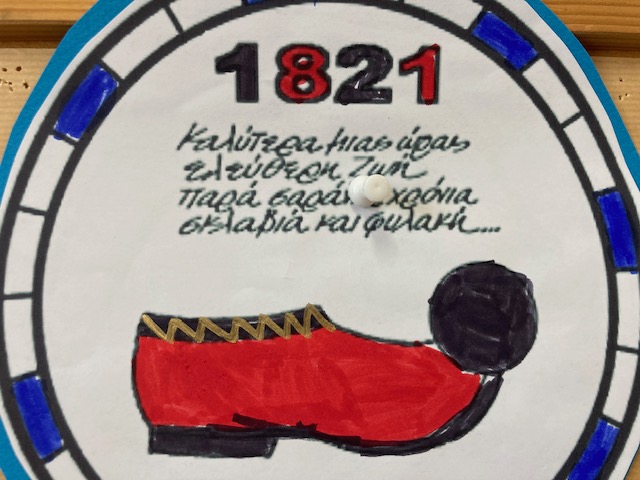 1821
Καλύτερα μιας ώρας
ελεύθερη ζωή
παρά χρόνια
σκλαβιά και φυλακή....